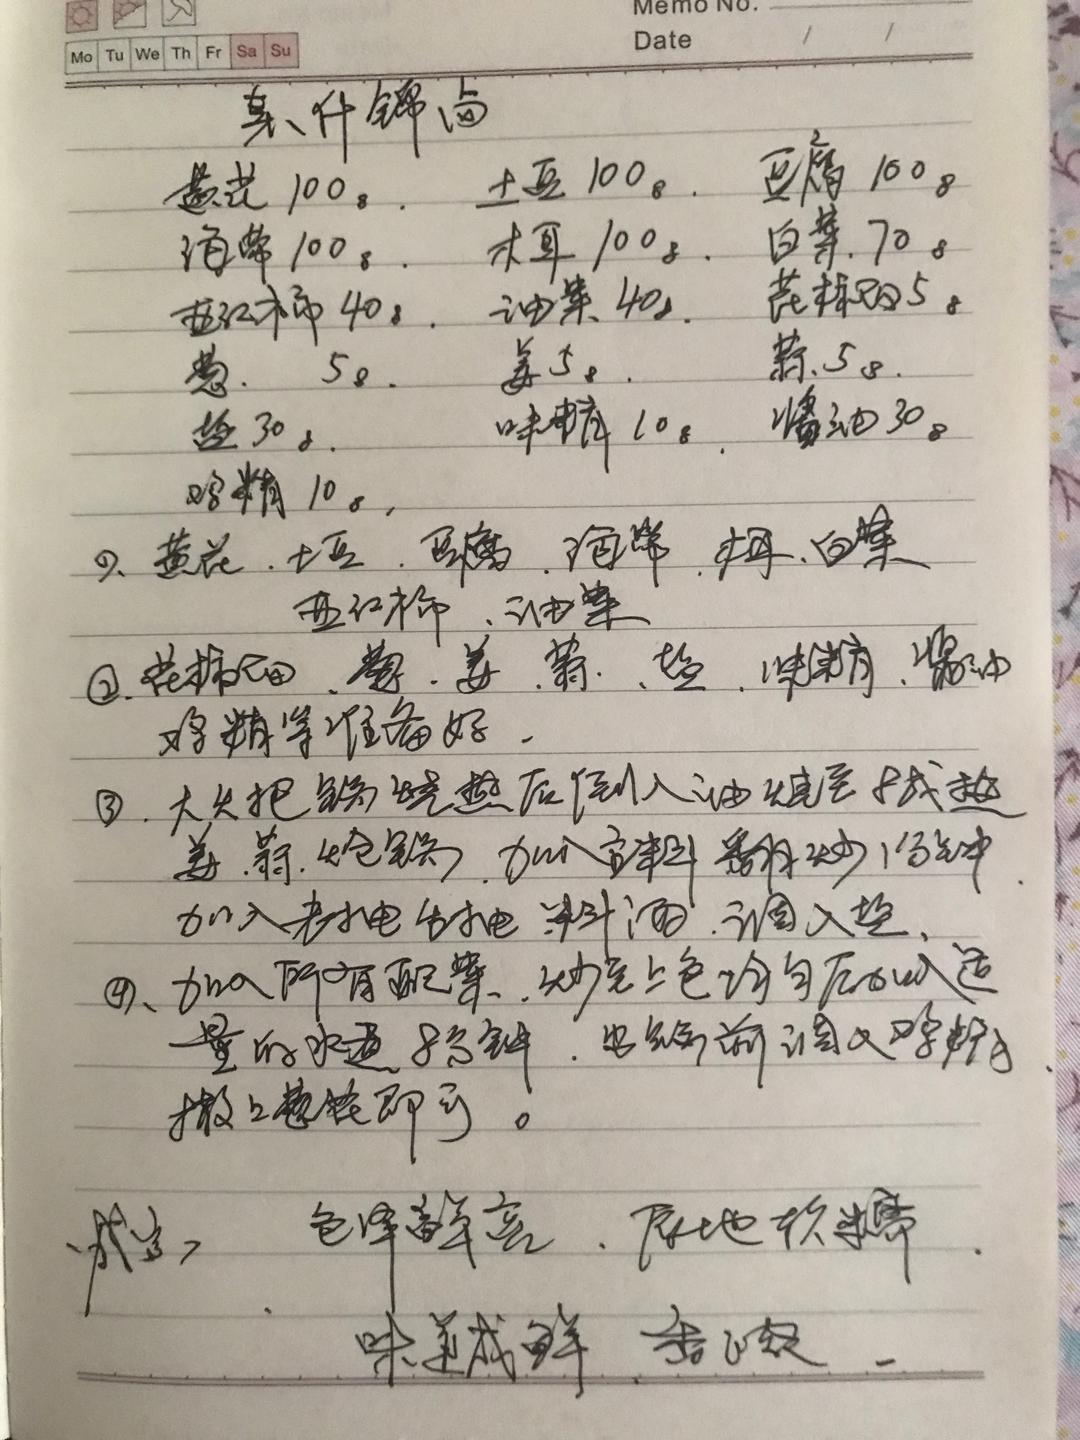 Memo No.
Mo Tu We Th Fr Sa Su
Date / /
素什锦卤
黄花100g. 土豆100g. 豆腐100g
海带100g. 木耳100g. 白菜.70g
西红柿40g. 油菜40g. 花椒面5g
葱. 5g. 姜5g. 蒜.5g.
盐30g. 味精10g. 酱油30g
鸡精10g,
①、黄花.土豆.豆腐.海带.木耳.白菜
西红柿、油菜
②.花椒面.葱.姜.蒜.盐.味精.酱油
鸡精等准备好.
③.大火把锅烧热后倒入油烧至8成热
姜.蒜.炝锅.加入主料翻炒1分钟
加入老抽生抽料酒.调入盐、
④、加入所有配菜、炒至上色均匀后加入适
量的水炖8分钟.出锅前调入鸡精
撒上葱花即可。
色泽鲜亮.质地软糯.
味美咸鲜